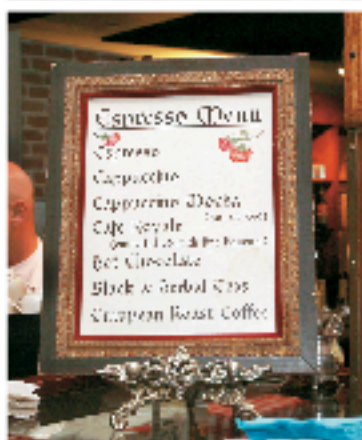 Espresso Menu
Espresso
Cappuccino
Cappuccino Mocha
Cafe Royale
Hot Chocolate
Black & Herbal Teas
European Roast Coffee